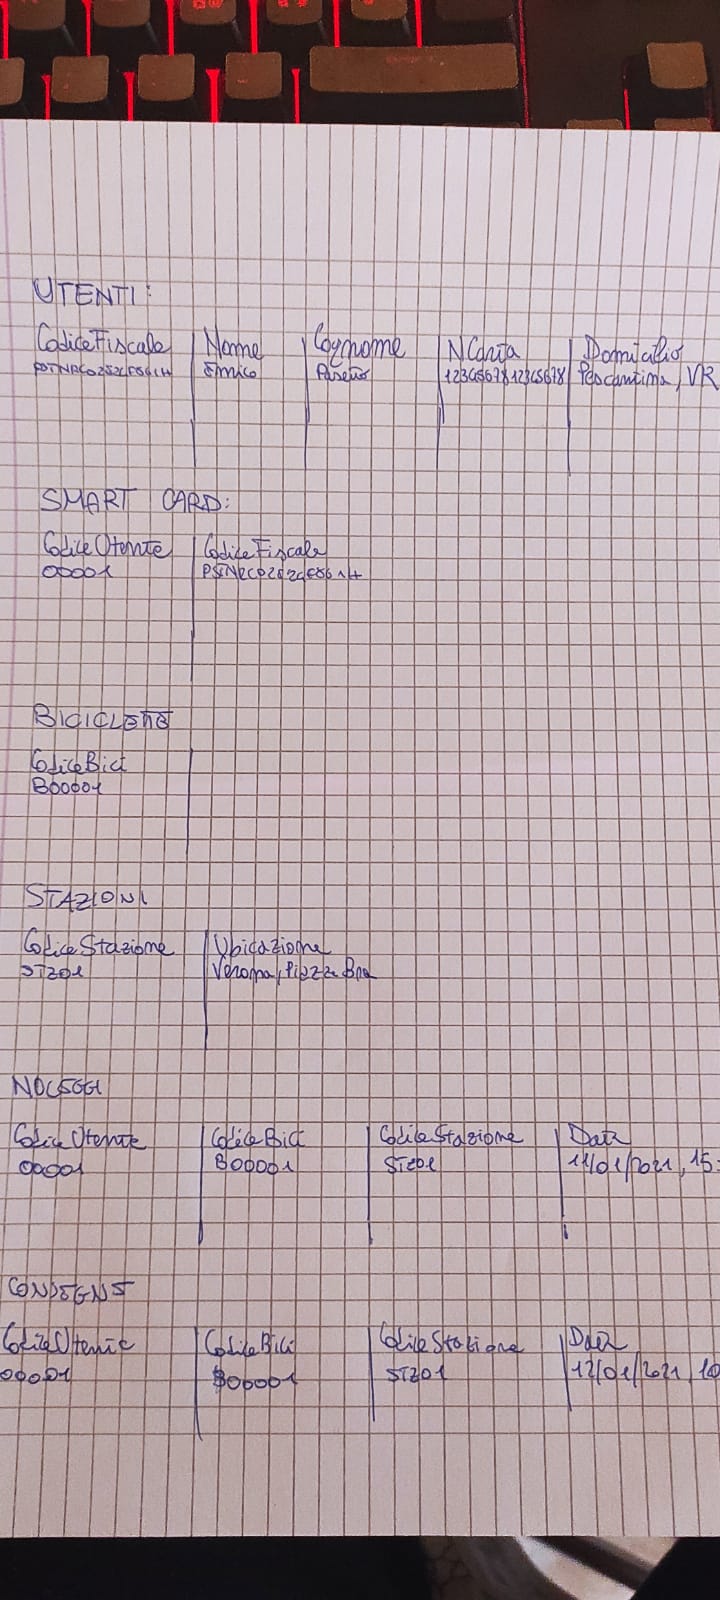 UTENTI:
CodiceFiscale Nome Cognome NCarta Domicilio
Enrico 1234567812345678 Pescantina, VR
SMART CARD:
CodiceUtente CodiceFiscale
00001
BICICLETTE
CodiceBici
B00001
STAZIONI
CodiceStazione Ubicazione
STZ01 Verona, Piazza Bra
NOLEGGI
CodiceUtente CodiceBici CodiceStazione Data
00001 B00001 STZ01 11/01/2021, 15:
CONSEGNE
CodiceUtente CodiceBici CodiceStazione Data
00001 B00001 STZ01 12/01/2021, 10